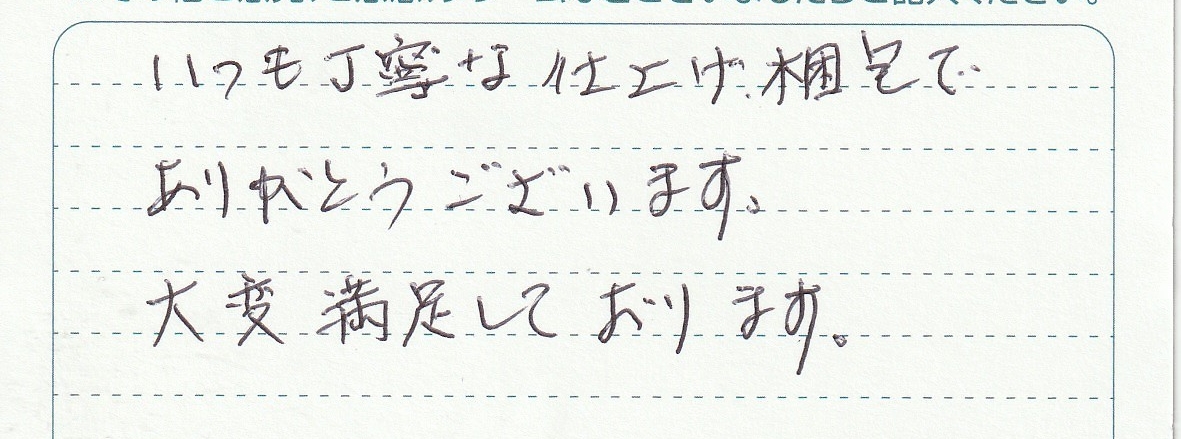 いつも丁寧な仕上げ、梱包で
ありがとうございます。
大変満足しております。